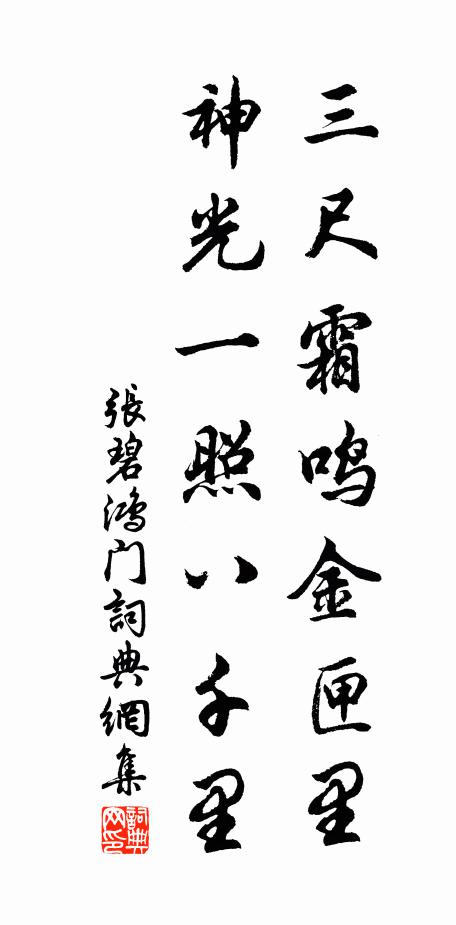 三尺霜鸣金匣里
神光一照八千里
張碧鴻门詞典網集
詞典
网印